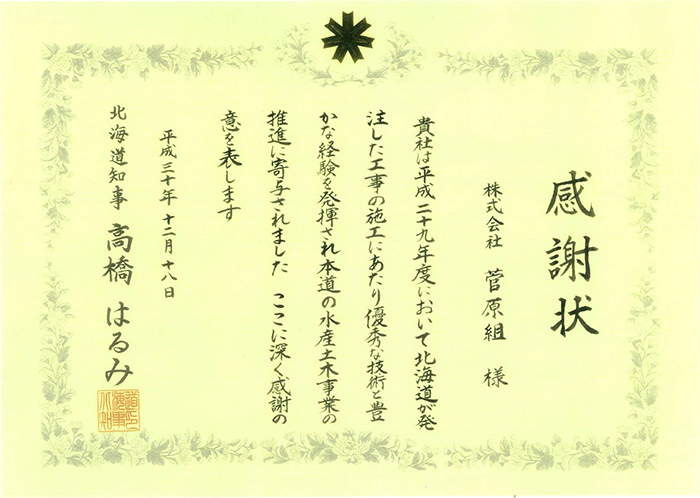 感謝状
株式会社 菅原組 様
貴社は平成二十九年度において北海道が発
注した工事の施工にあたり優秀な技術と豊
かな経験を発揮され本道の水産土木事業の
推進に寄与されました ここに深く感謝の
意を表します
平成三十年十二月十八日
北海道知事 高橋はるみ